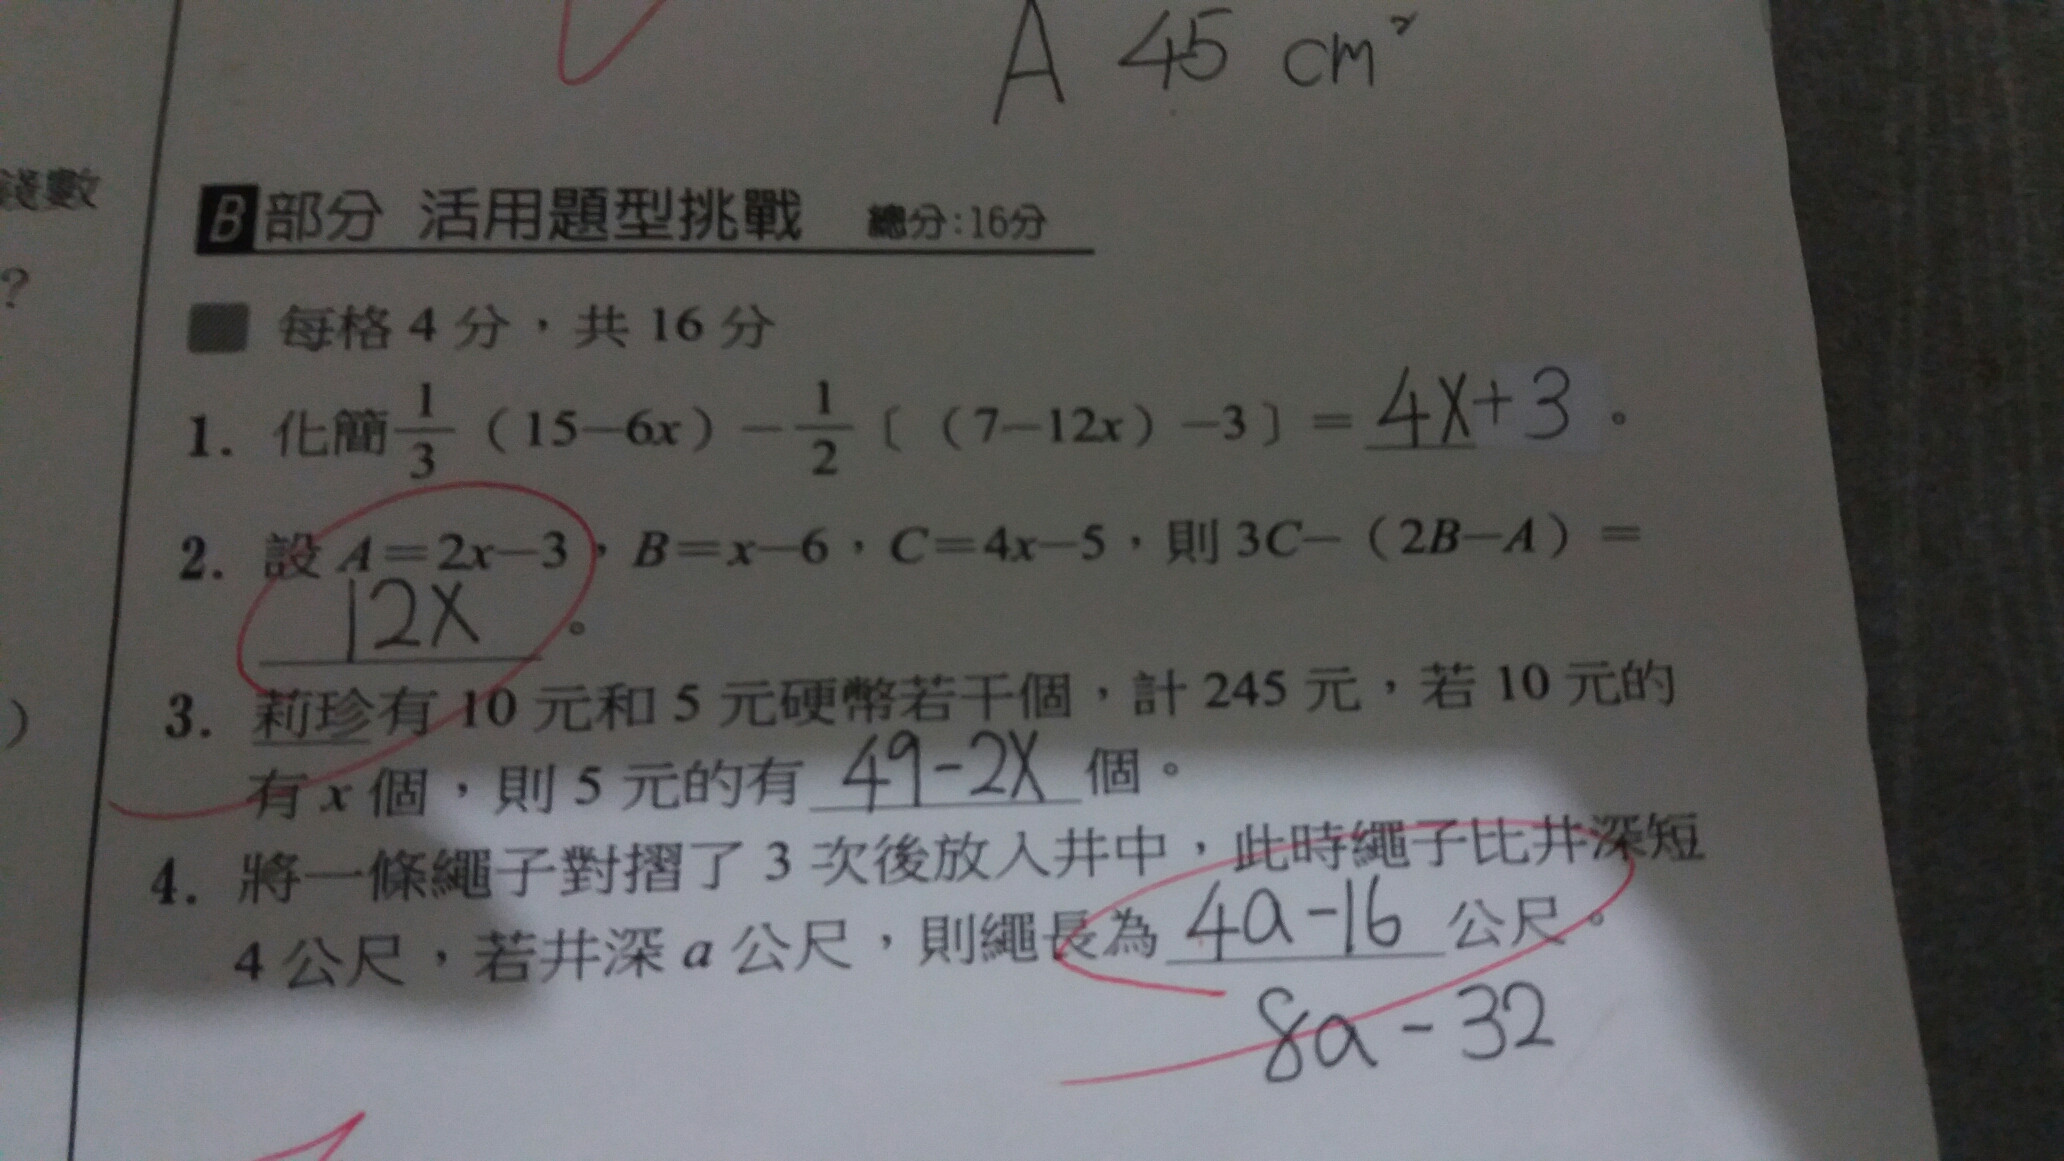 A 45 cm²
錢數
?
B 部分 活用題型挑戰 總分:16分
每格 4 分，共 16 分
1. 化簡 1/3 (15−6x) − 1/2 〔 (7−12x) −3〕= 4X+3 。
2. 設 A=2x−3，B=x−6，C=4x−5，則 3C−（2B−A）=
12X 。
3. 莉珍有 10 元和 5 元硬幣若干個，計 245 元，若 10 元的
)
有 x 個，則 5 元的有 49-2X 個。
4. 將一條繩子對摺了 3 次後放入井中，此時繩子比井深短
4 公尺，若井深 a 公尺，則繩長為 4a-16 公尺。
8a-32